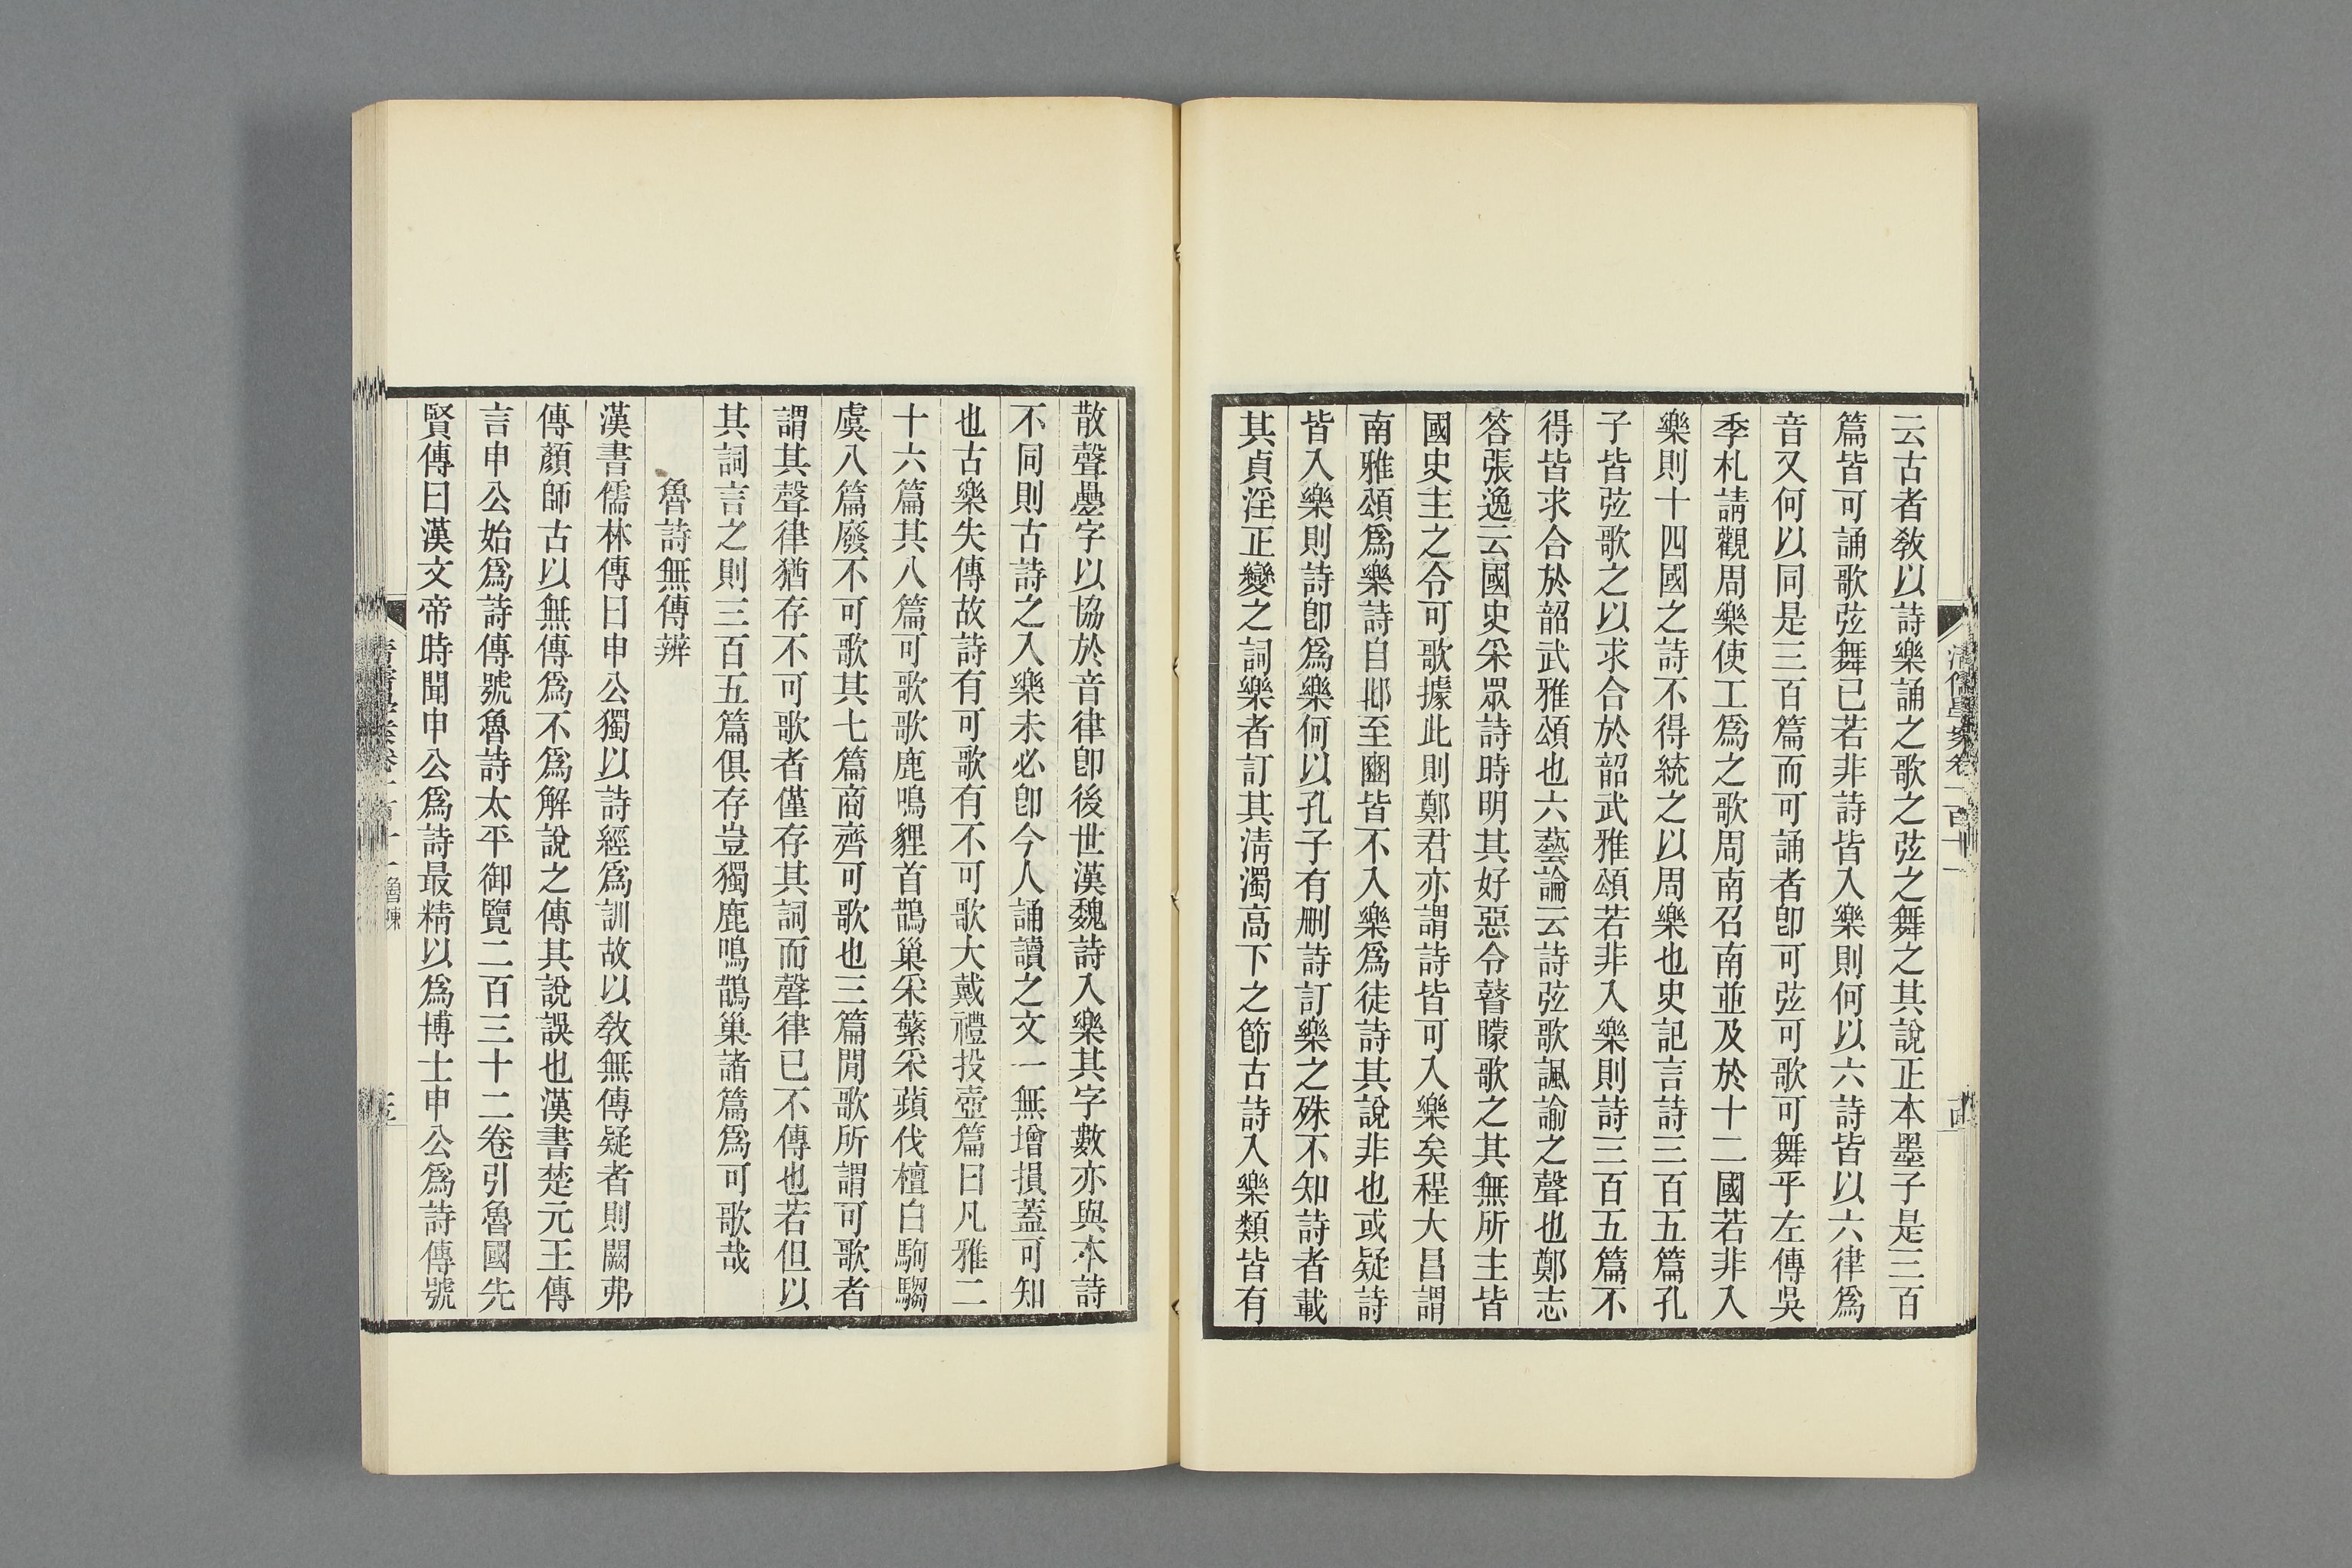 云古者敎以詩樂誦之歌之弦之舞之其說正本墨子是三百
篇皆可誦歌弦舞已若非詩皆入樂則何以六詩皆以六律爲
音又何以同是三百篇而可誦者卽可弦可歌可舞乎左傳吳
季札請觀周樂使工爲之歌周南召南並及於十二國若非入
樂則十四國之詩不得統之以周樂也史記言詩三百五篇孔
子皆弦歌之以求合於韶武雅頌若非入樂則詩三百五篇不
得皆求合於韶武雅頌也六藝論云詩弦歌諷諭之聲也鄭志
答張逸云國史采眾詩時明其好惡令瞽矇歌之其無所主皆
國史主之令可歌據此則鄭君亦謂詩皆可入樂矣程大昌謂
南雅頌爲樂詩自邶至豳皆不入樂爲徒詩其說非也或疑詩
皆入樂則詩卽爲樂何以孔子有刪詩訂樂之殊不知詩者載
其貞淫正變之詞樂者訂其淸濁高下之節古詩入樂類皆有
散聲疊字以協於音律卽後世漢魏詩入樂其字數亦與本詩
不同則古詩之入樂未必卽今人誦讀之文一無增損蓋可知
也古樂失傳故詩有可歌有不可歌大戴禮投壺篇曰凡雅二
十六篇其八篇可歌歌鹿鳴貍首鵲巢采蘩采蘋伐檀白駒騶
虞八篇廢不可歌其七篇商齊可歌也三篇閒歌所謂可歌者
謂其聲律猶存不可歌者僅存其詞而聲律已不傳也若但以
其詞言之則三百五篇俱存豈獨鹿鳴鵲巢諸篇爲可歌哉
魯詩無傳辨
漢書儒林傳曰申公獨以詩經爲訓故以敎無傳疑者則闕弗
傳顏師古以無傳爲不爲解說之傳其說誤也漢書楚元王傳
言申公始爲詩傳號魯詩太平御覽二百三十二卷引魯國先
賢傳曰漢文帝時聞申公爲詩最精以爲博士申公爲詩傳號